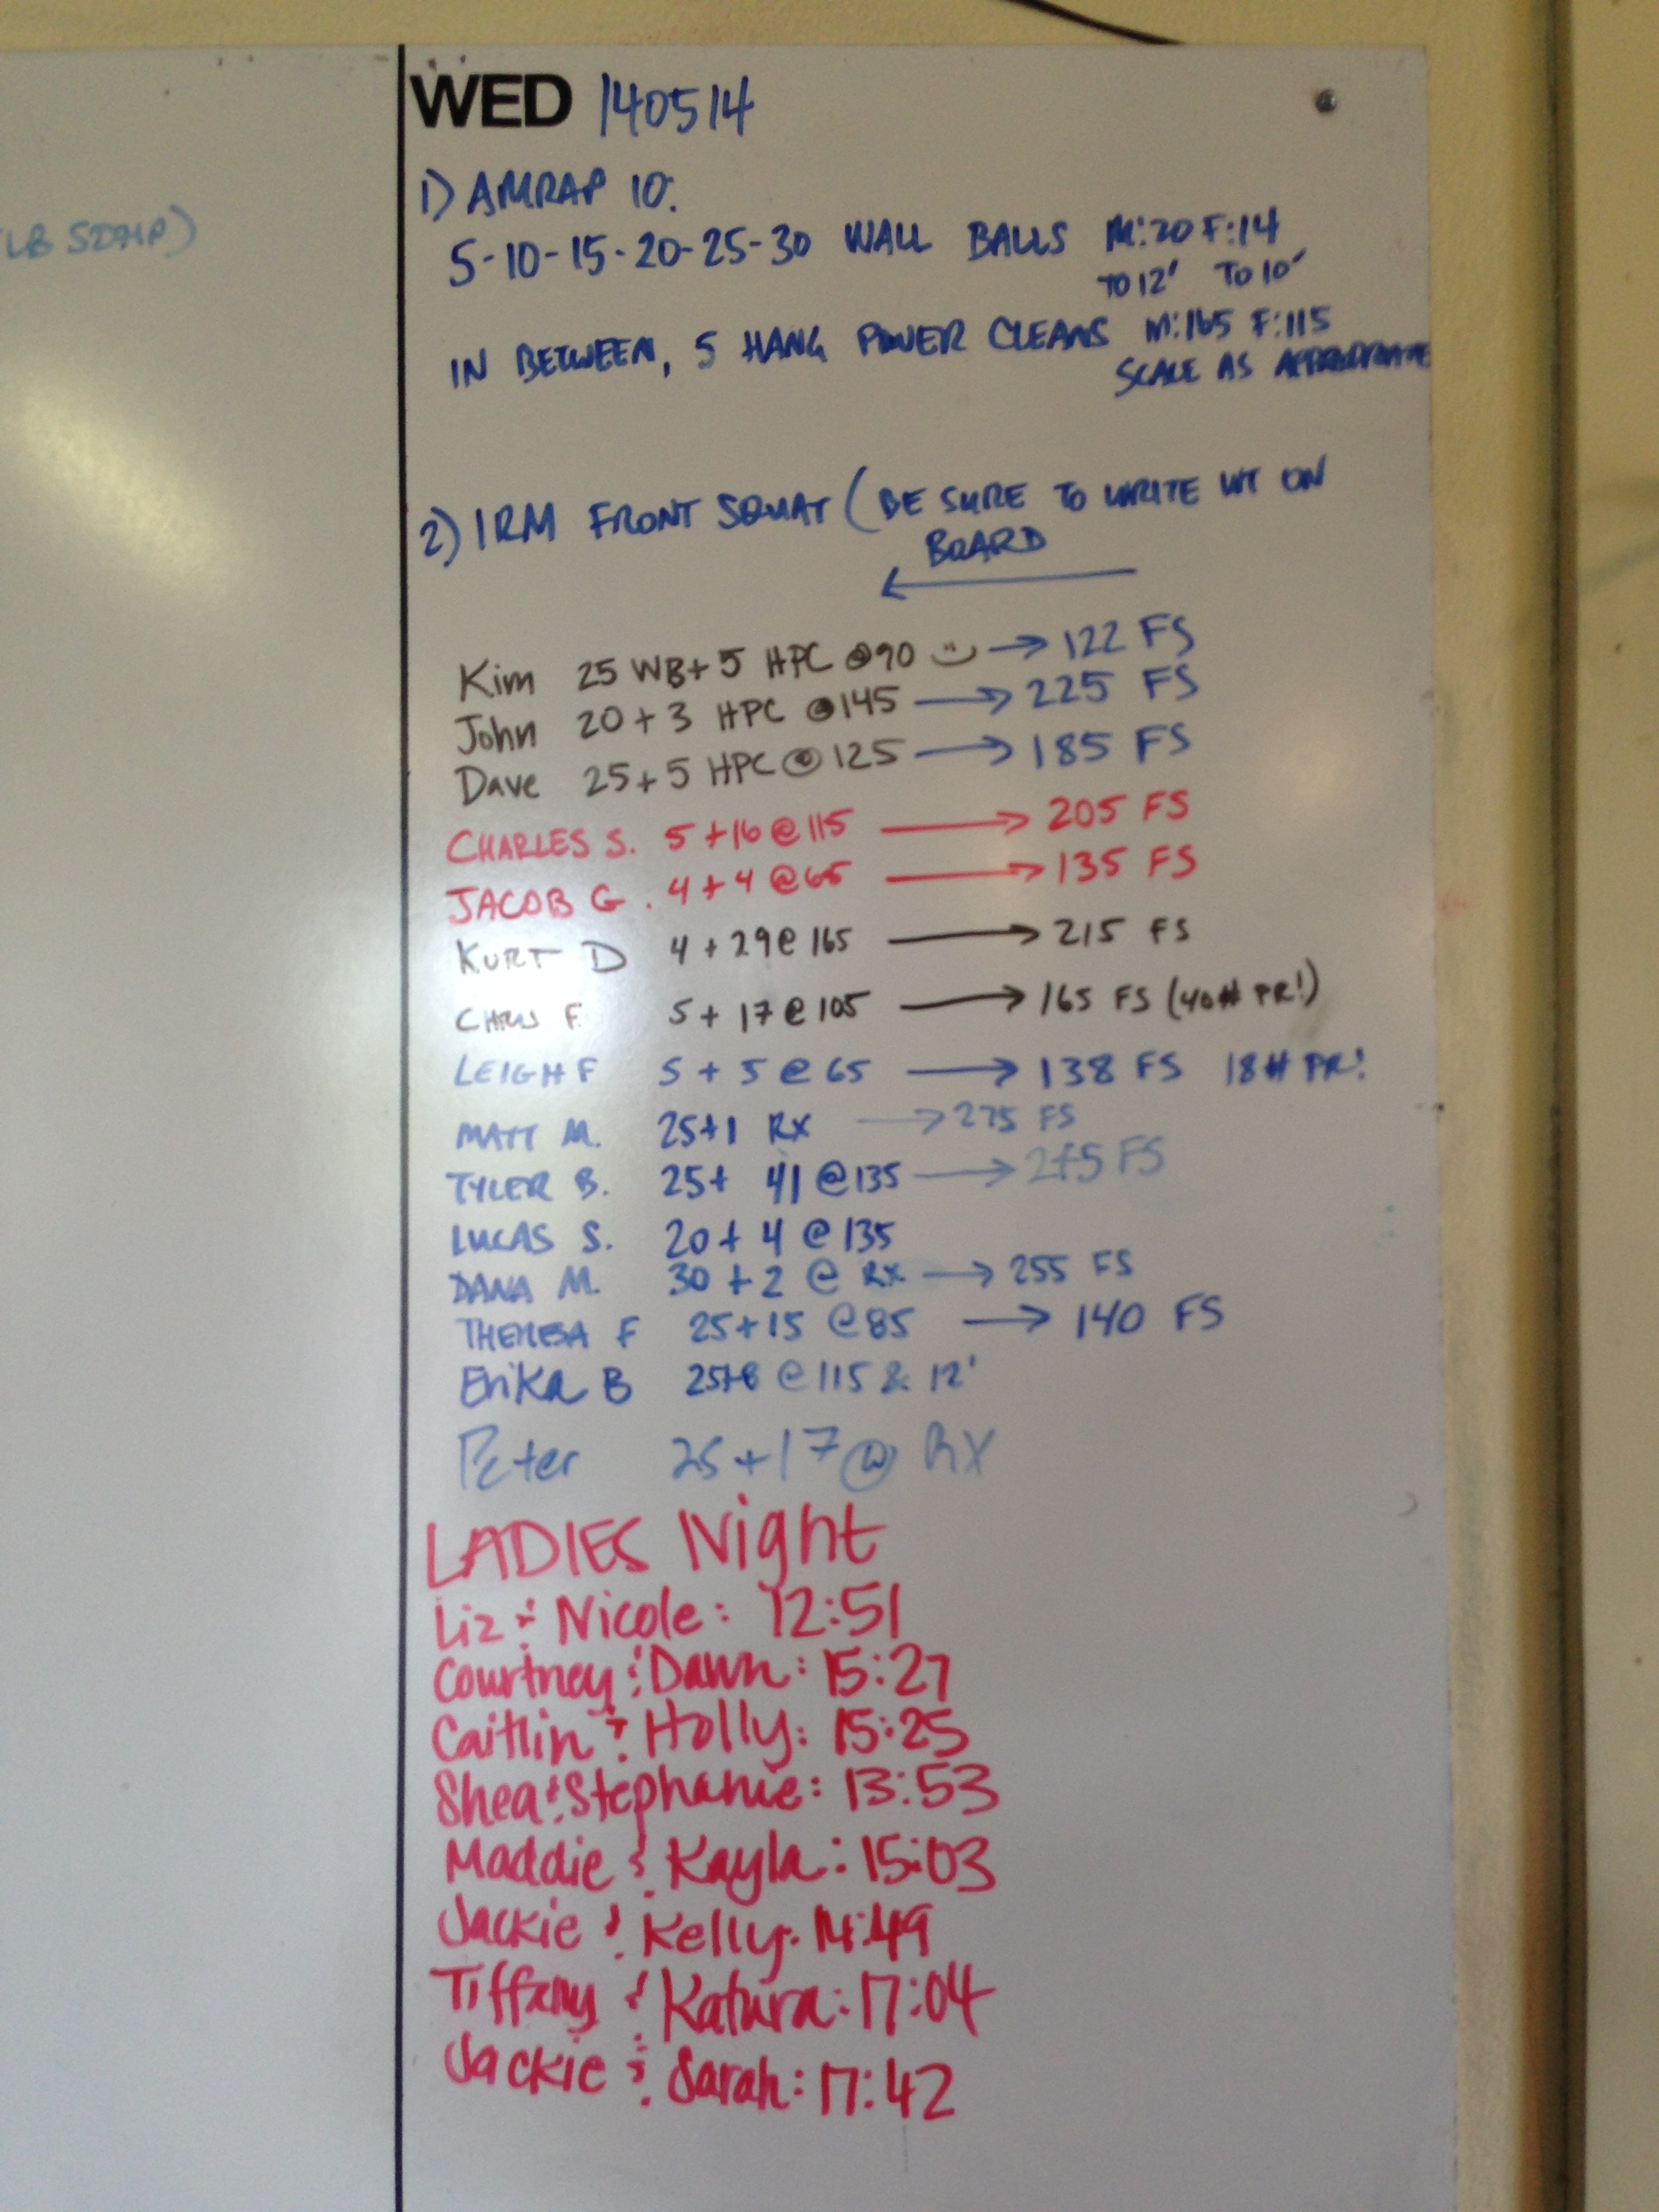 LB SDHP)
WED 140514
1) AMRAP 10:
5-10-15-20-25-30 WALL BALLS M:20 F:14
TO 12' TO 10'
IN BETWEEN, 5 HANG POWER CLEANS M:165 F:115
SCALE AS APPROPRIATE
2) 1RM FRONT SQUAT (BE SURE TO WRITE WT ON
BOARD
Kim 25 WB+5 HPC @90 → 122 FS
John 20+3 HPC @145 → 225 FS
Dave 25+5 HPC @ 125 → 185 FS
CHARLES S. 5+16@115 → 205 FS
JACOB G. 4+4@65 → 135 FS
KURT D 4+29@165 → 215 FS
CHRIS F 5+17@105 → 165 FS (40# PR!)
LEIGH F 5+5@65 → 138 FS 18# PR!
MATT M. 25+1 RX → 275 FS
TYLER B. 25+ 41 @135 → FS
LUCAS S. 20+4 @135
DANA M. 30+2 @ RX → 255 FS
THERESA F 25+15 @85 → 140 FS
Erika B @115 & 12'
Peter 25+17@ RX
LADIES Night
Liz & Nicole: 12:51
Courtney & Dawn: 15:27
Caitlin & Holly: 15:25
Shea & Stephanie: 13:53
Maddie & Kayla: 15:03
Jackie & Kelly: 14:49
Tiffany & Katura: 17:04
Jackie & Sarah: 17:42